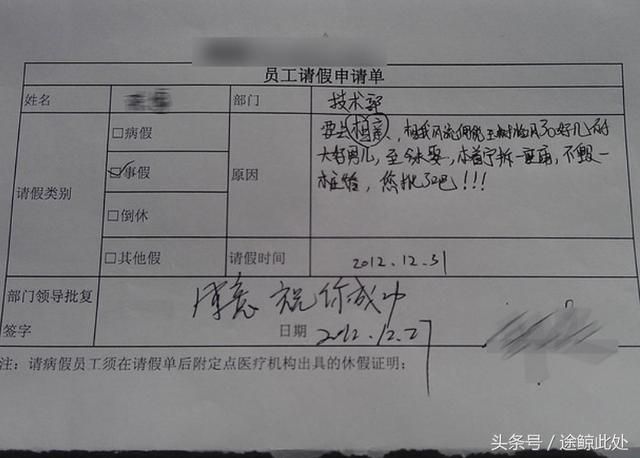 员工请假申请单
姓名 部门 技术部
请假类别 □病假 原因 要去相亲,想我风流倜傥玉树临风30好几的
☑事假 大好男儿,至今未娶,本着宁拆一座庙,不毁一
□倒休 桩婚,您批了吧!!!
□其他假 请假时间 2012.12.31
部门领导批复 同意 祝你成功
签字 日期 2012.12.27
注:请病假员工须在请假单后附定点医疗机构出具的休假证明;
头条号 / 途鲸此处